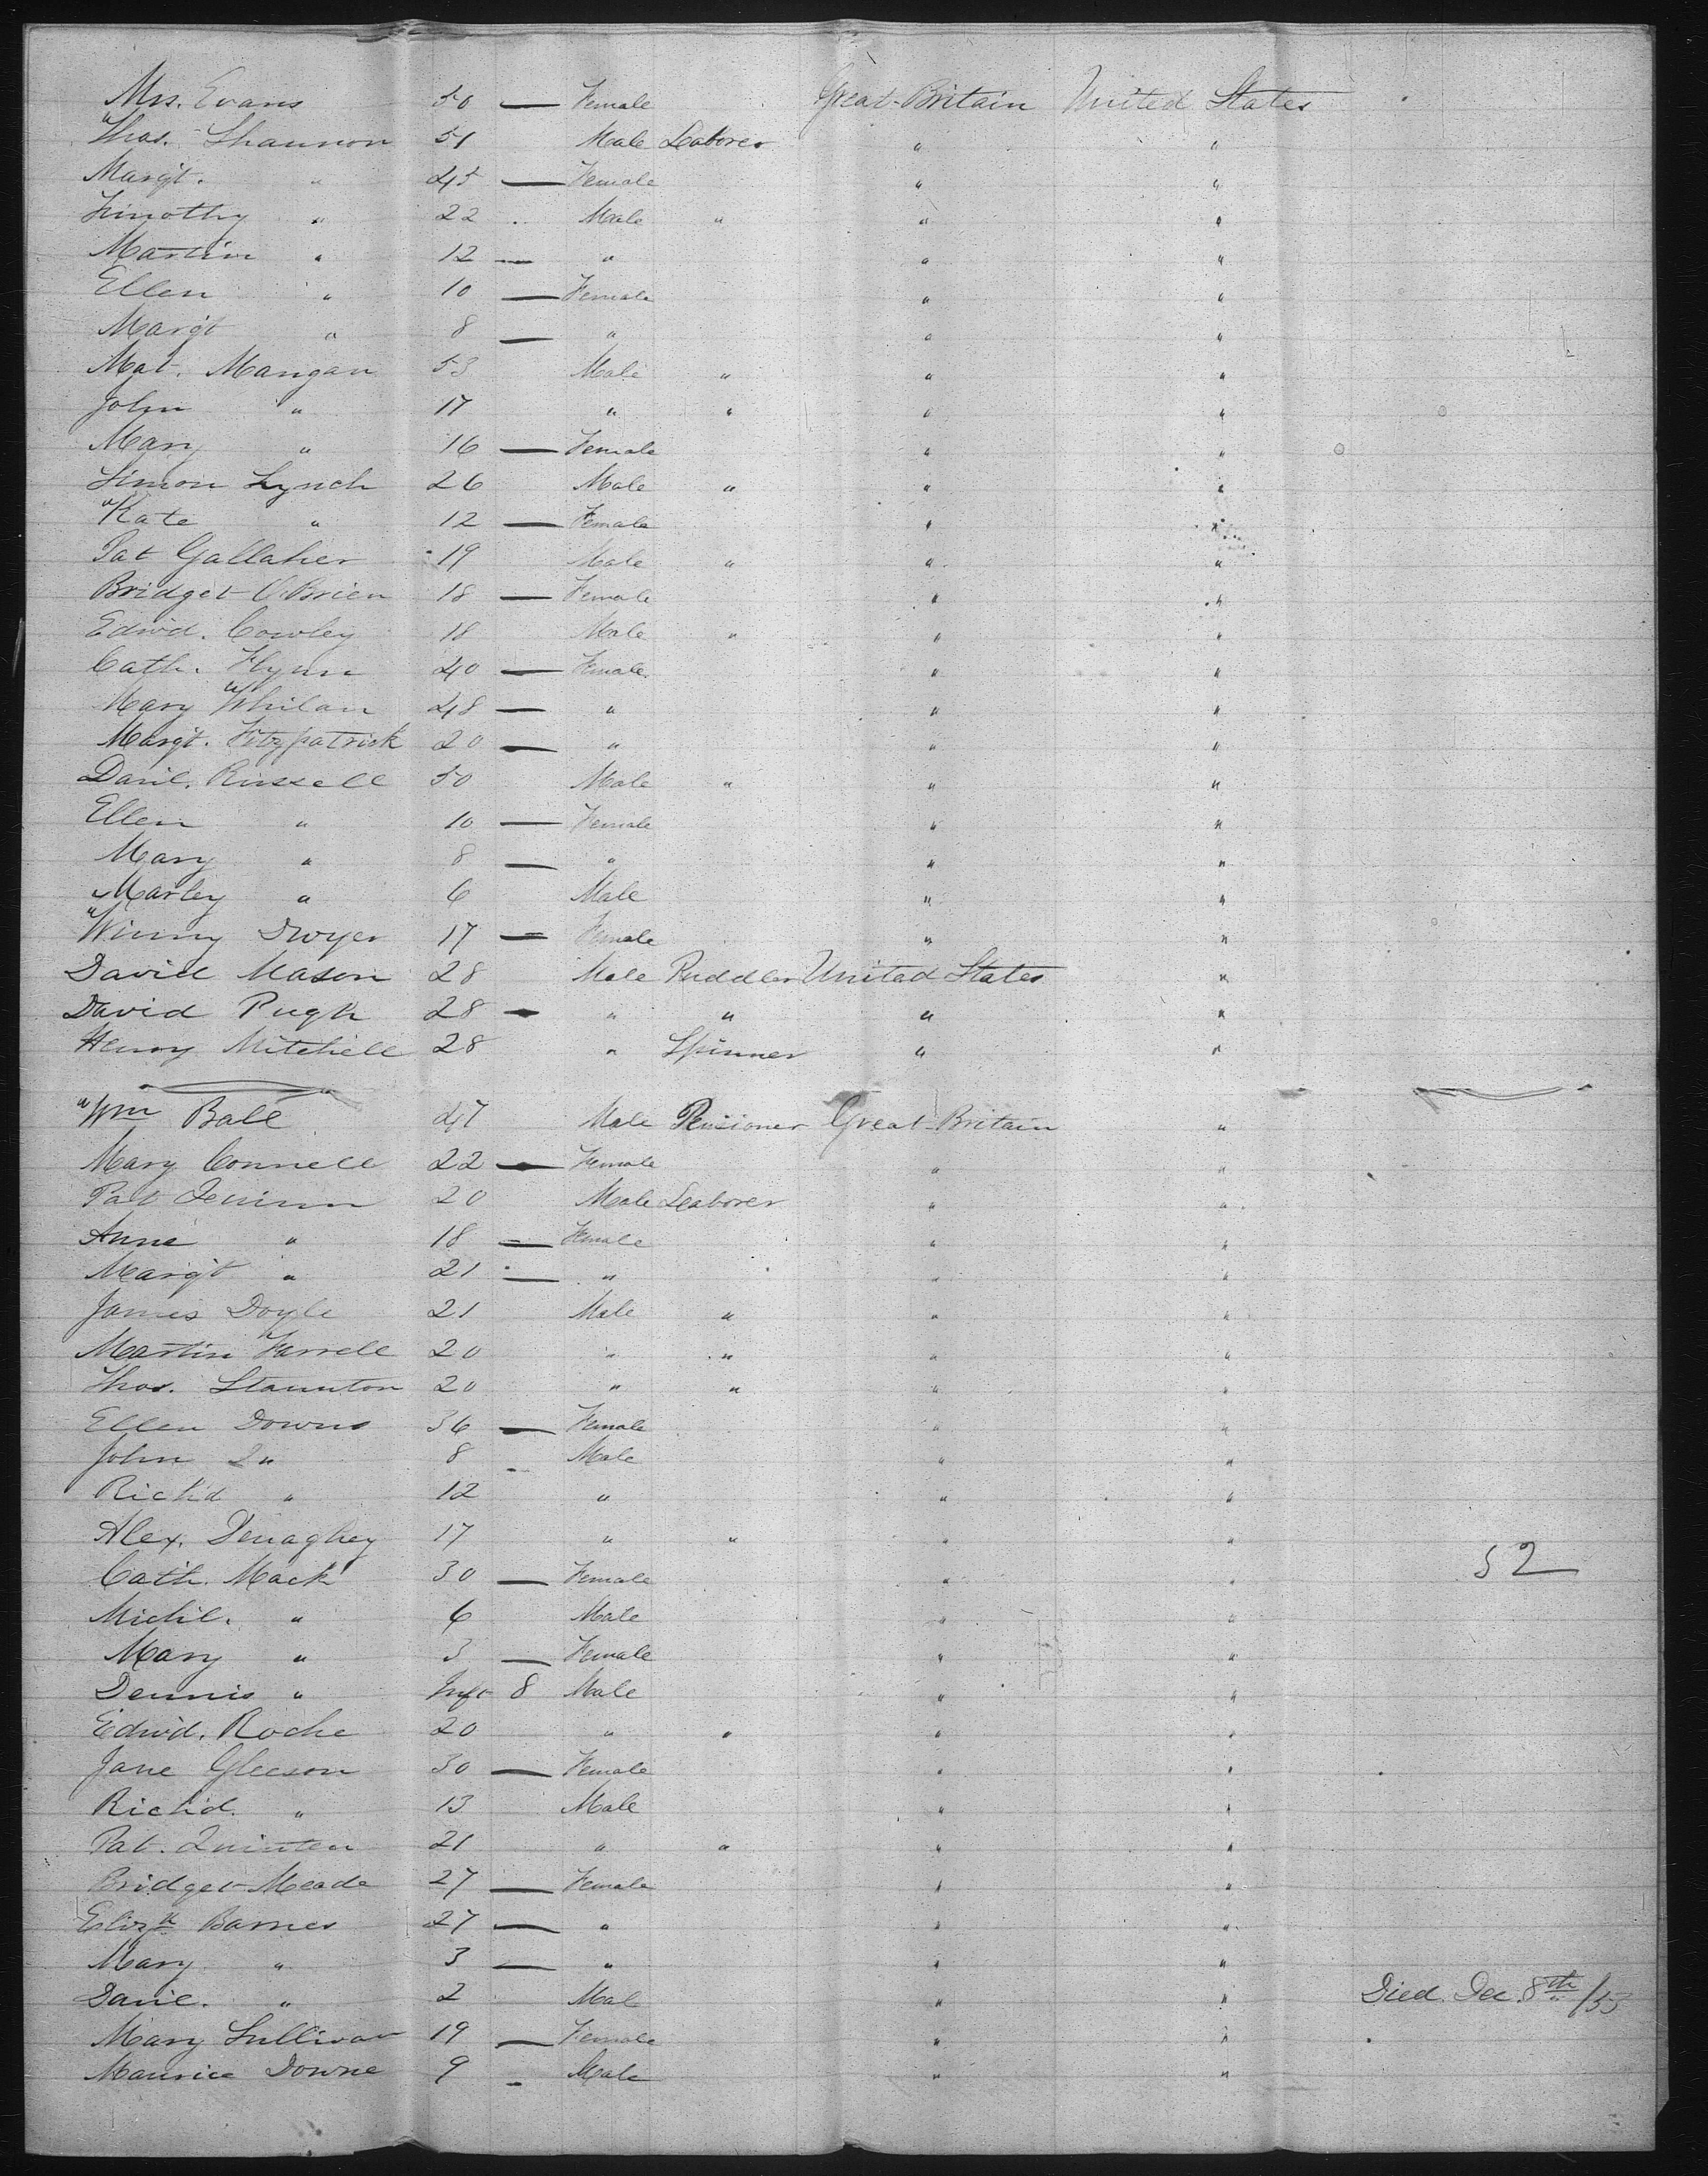 Mrs. Evans 50 — Female Great Britain United States
Thos. Shannon 51 Male Laborer " "
Margt. " 45 — Female " "
Timothy " 22 .. Male " " "
Martin " 12 — " " "
Ellen " 10 — Female " "
Margt " 8 — " " "
Mat. Mangan 53 Male " " "
John " 17 " " " "
Mary " 16 — Female " "
Simon Lynch 26 Male " " "
Kate " 12 — Female " "
Pat Gallaher 19 Male " " "
Bridget O'Brien 18 — Female " "
Edwd. Cowley 18 Male " " "
Cath. Flynn 40 — Female " "
Mary Whilan 48 — " " "
Margt. Fitzpatrick 20 — " " "
Danl. Russell 50 Male " " "
Ellen " 10 — Female " "
Mary " 8 — " " "
Marley " 6 Male " "
Winny Dwyer 17 — Female " "
David Mason 28 Male Puddler United States "
David Pugh 28 — " " " "
Henry Mitchell 28 " Spinner " "
Wm Ball 47 Male Pensioner Great Britain "
Mary Connell 22 — Female " "
Pat 20 Male Laborer " "
Anne " 18 — Female " "
Margt " 21 — " " "
James Doyle 21 Male " " "
Martin Farrell 20 " " " "
Thos. Staunton 20 " " " "
Ellen Downs 36 — Female " "
John D" 8 Male " "
Richd " 12 " " "
Alex. Denaghey 17 " " " "
Cath. Mack 30 — Female " " 52
Michl. " 6 Male " "
Mary " 3 — Female " "
Dennis " Inft 8 Male " "
Edwd. Roche 20 " " " "
Jane Gleeson 30 — Female " "
Richd. " 13 Male " "
Pat. Quinten 21 " " " "
Bridget Meade 27 — Female " "
Elizth Barnes 27 — " " "
Mary " 3 — " " "
Danl. " 2 Mal " " Died Dec. 8th /53
Mary Sullivan 19 — Female " "
Maurice Downe 9 - Male " "